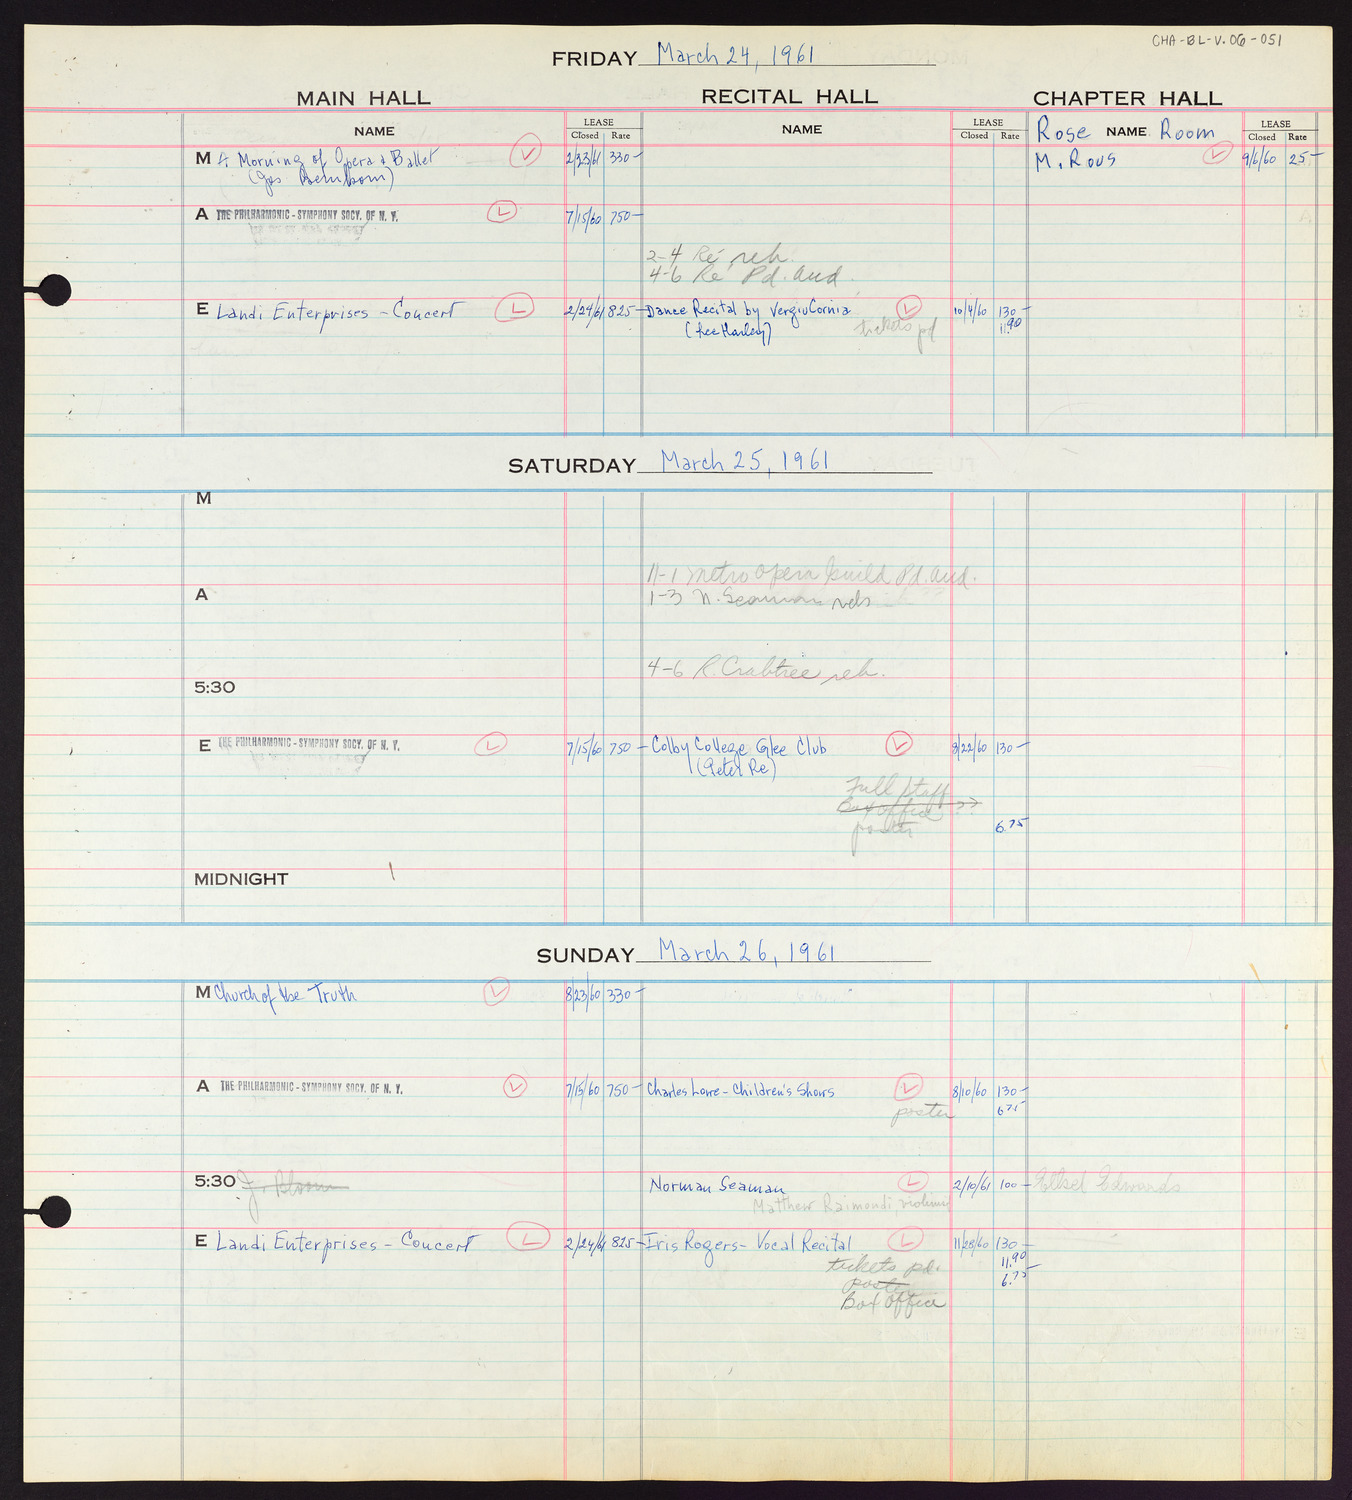 CHA-BL-V.06-051
FRIDAY March 24, 1961
MAIN HALL RECITAL HALL CHAPTER HALL
NAME LEASE Closed Rate NAME LEASE Closed Rate Rose NAME Room LEASE Closed Rate
M A Morning of Opera & Ballet 2/23/61 330- M. Rous 9/6/60 25-
A THE PHILHARMONIC-SYMPHONY SOCY. OF N. Y. 7/15/60 750-
2-4 Re reh.
4-6 Re Pd. aud.
E Landi Enterprises - Concert L 2/24/61 825- Dance Recital by L 10/4/60 130-
tickets pd 11.90
SATURDAY March 25, 1961
M
11-1 Metro Opera Guild Pd. aud.
A
1-3 N. Seaman reh
4-6 R. Crabtree reh.
5:30
E THE PHILHARMONIC-SYMPHONY SOCY. OF N. Y. L 7/15/60 750- Colby College Glee Club L 8/22/60 130-
(Peter Re)
Full Staff
Box office ??
poster 6.75
MIDNIGHT
SUNDAY March 26, 1961
M Church of the Truth L 8/23/60 330-
A THE PHILHARMONIC-SYMPHONY SOCY. OF N. Y. L 7/15/60 750- Charles Lowe - Children's Shows L 8/10/60 130-
poster 6.75
5:30 J. Bloom Norman Seaman L 2/10/61 100- Edwards
Matthew Raimondi, violinist
E Landi Enterprises - Concert L 2/24/61 825- Iris Rogers - Vocal Recital L 11/28/60 130-
tickets pd. 11.90
poster 6.75
Box Office